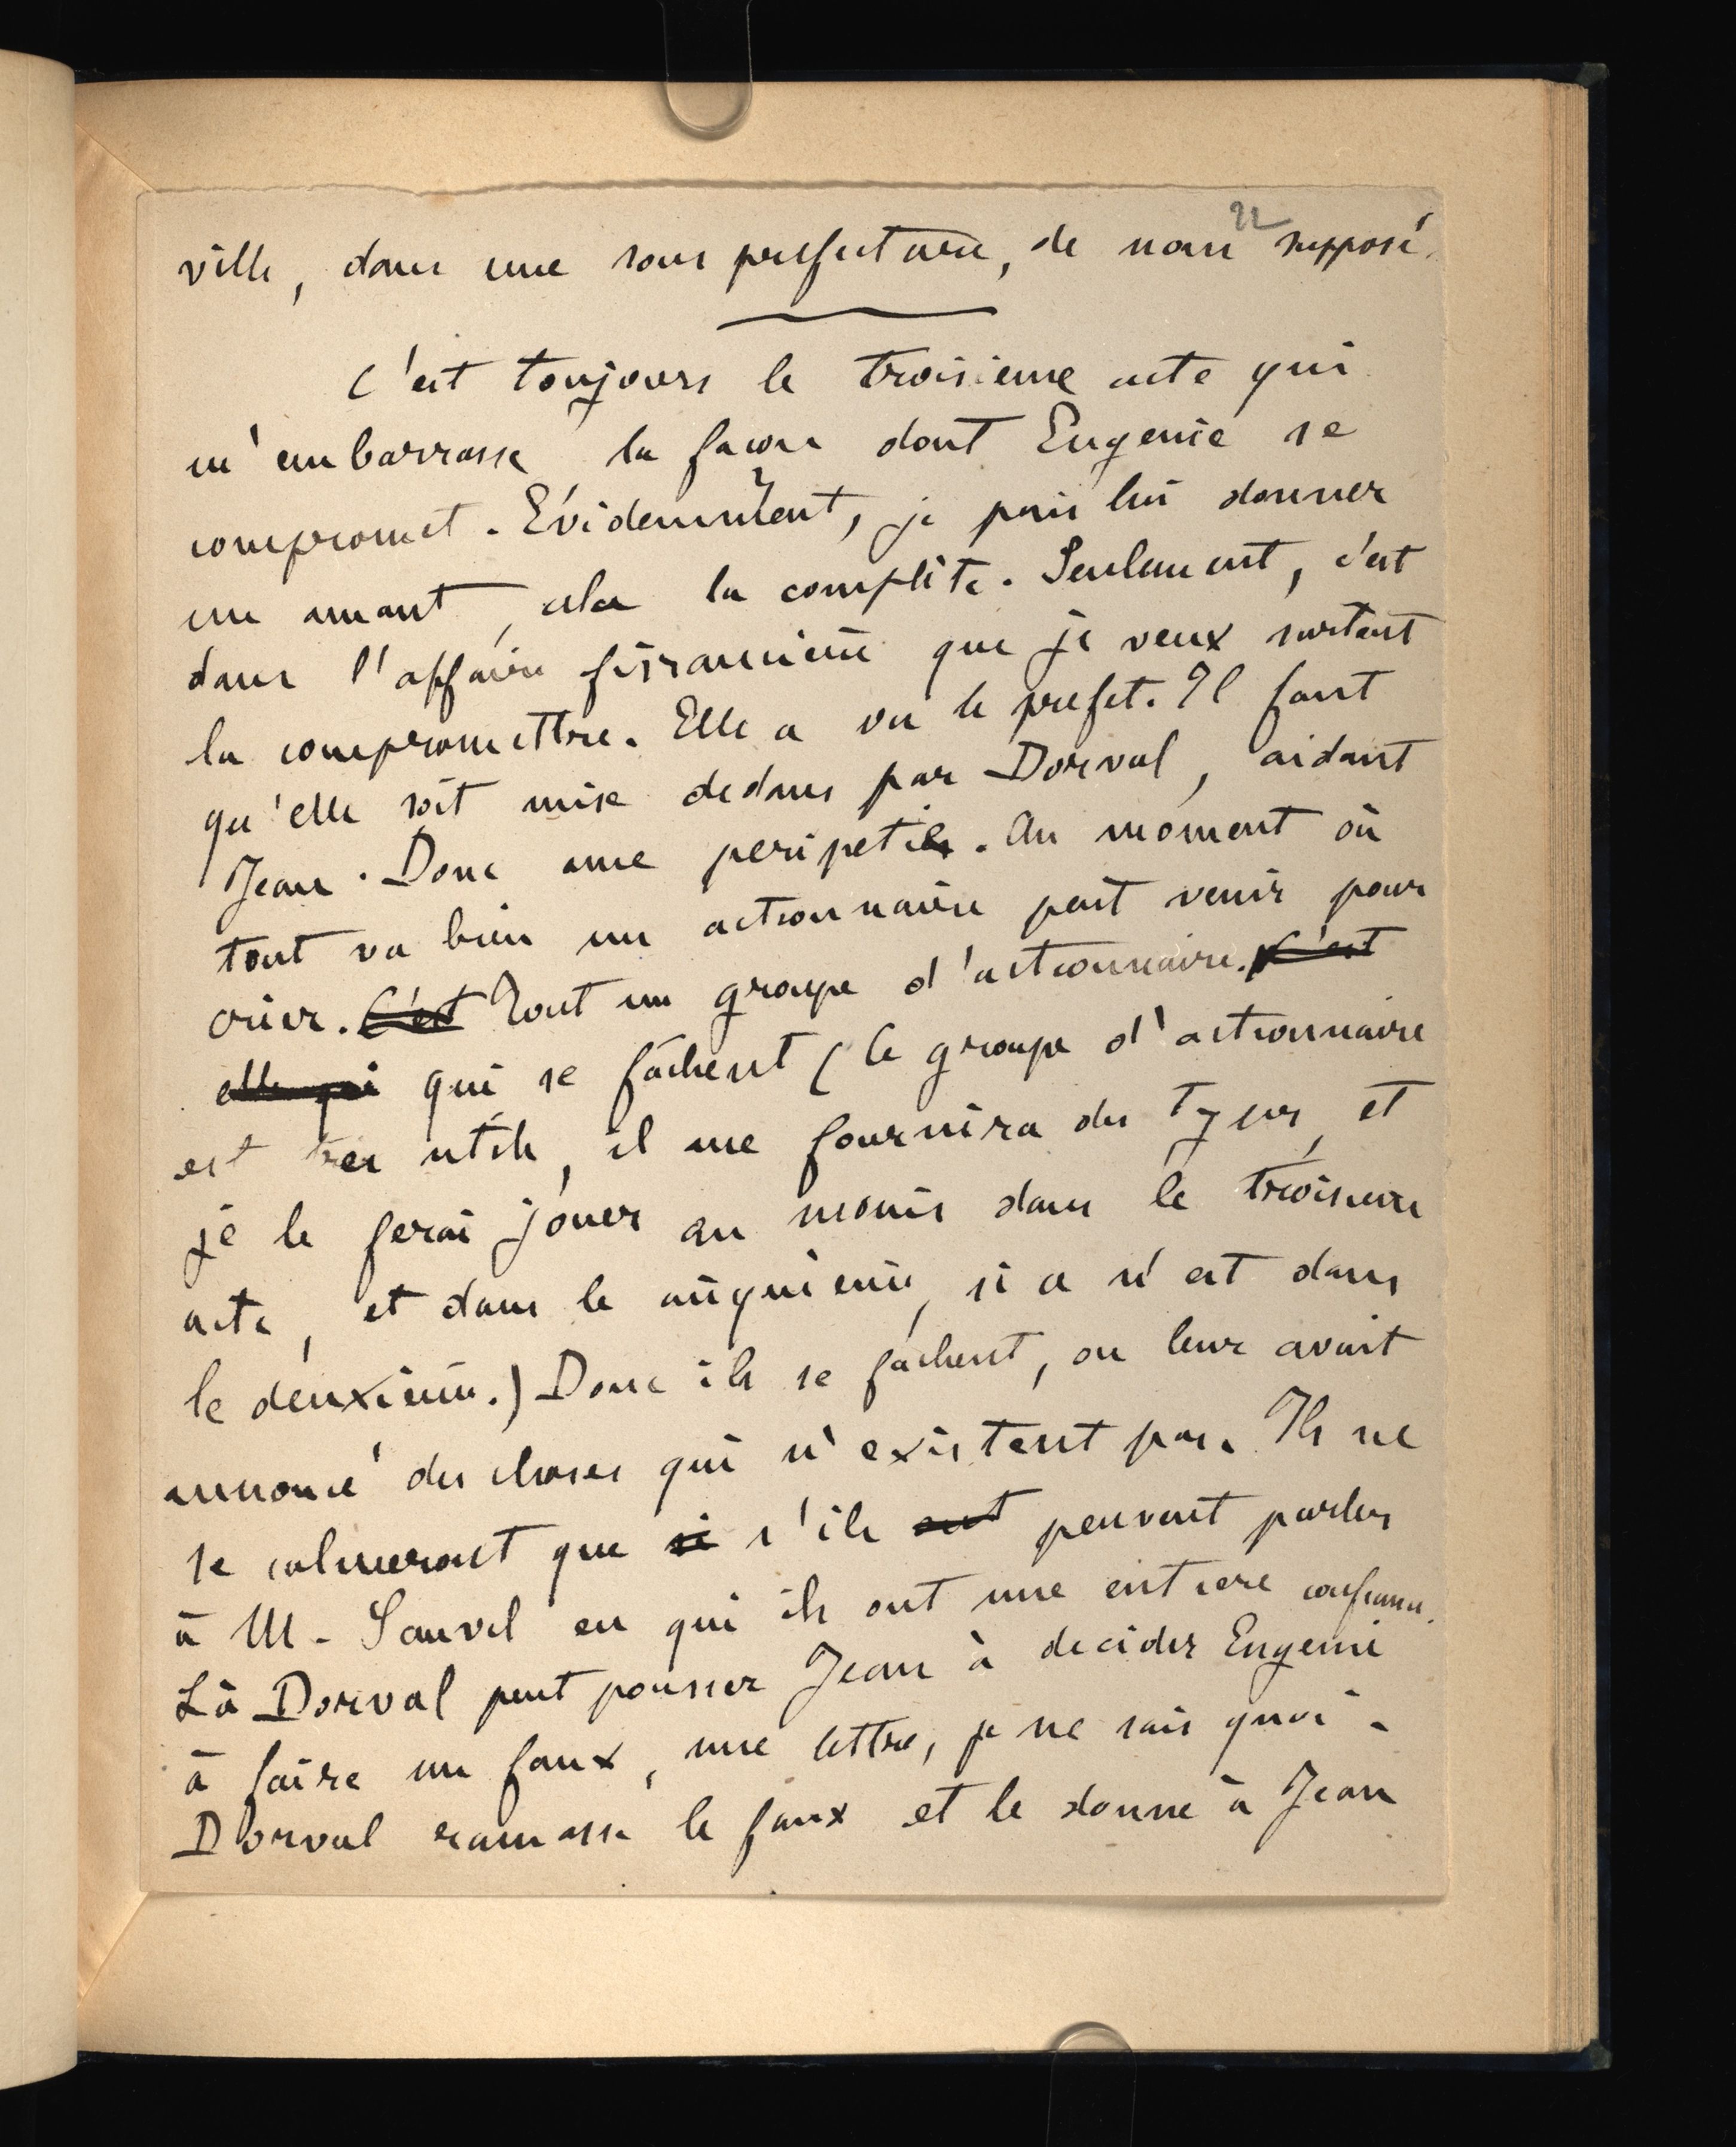 22
ville, dans une sous prefecture, de nom supposé.
C'est toujours le troisieme acte qui
m'embarrasse, la façon dont Eugenie se
compromet. Evidemment, je puis lui donner
un amant, cela la complète. Seulement, c'est
dans l'affaire financière que je veux surtout
la compromettre. Elle a vu le prefet. Il faut
qu'elle soit mise dedans par Dorval, aidant
Jean. Donc une peripetie. Au moment où
tout va bien un actionnaire peut venir pour
crier. C'est Tout un groupe d'actionnaire. C'est
elle qui qui se fâchent (le groupe d'actionnaire
est très utile, il me fournira des types, et
je le ferai jouer au moins dans le troisieme
acte, et dans le cinquième, si ce n'est dans
le deuxième.) Donc ils se fâchent, on leur avait
annoncé des choses qui n'existent pas. Ils ne
se calmeront que si s'ils ont peuvent parler
à M. Sauvel en qui ils ont une entiere confiance.
Là Dorval peut pousser Jean à decider Eugenie
à faire un faux, une lettre, je ne sais quoi.
Dorval ramasse le faux et le donne à Jean